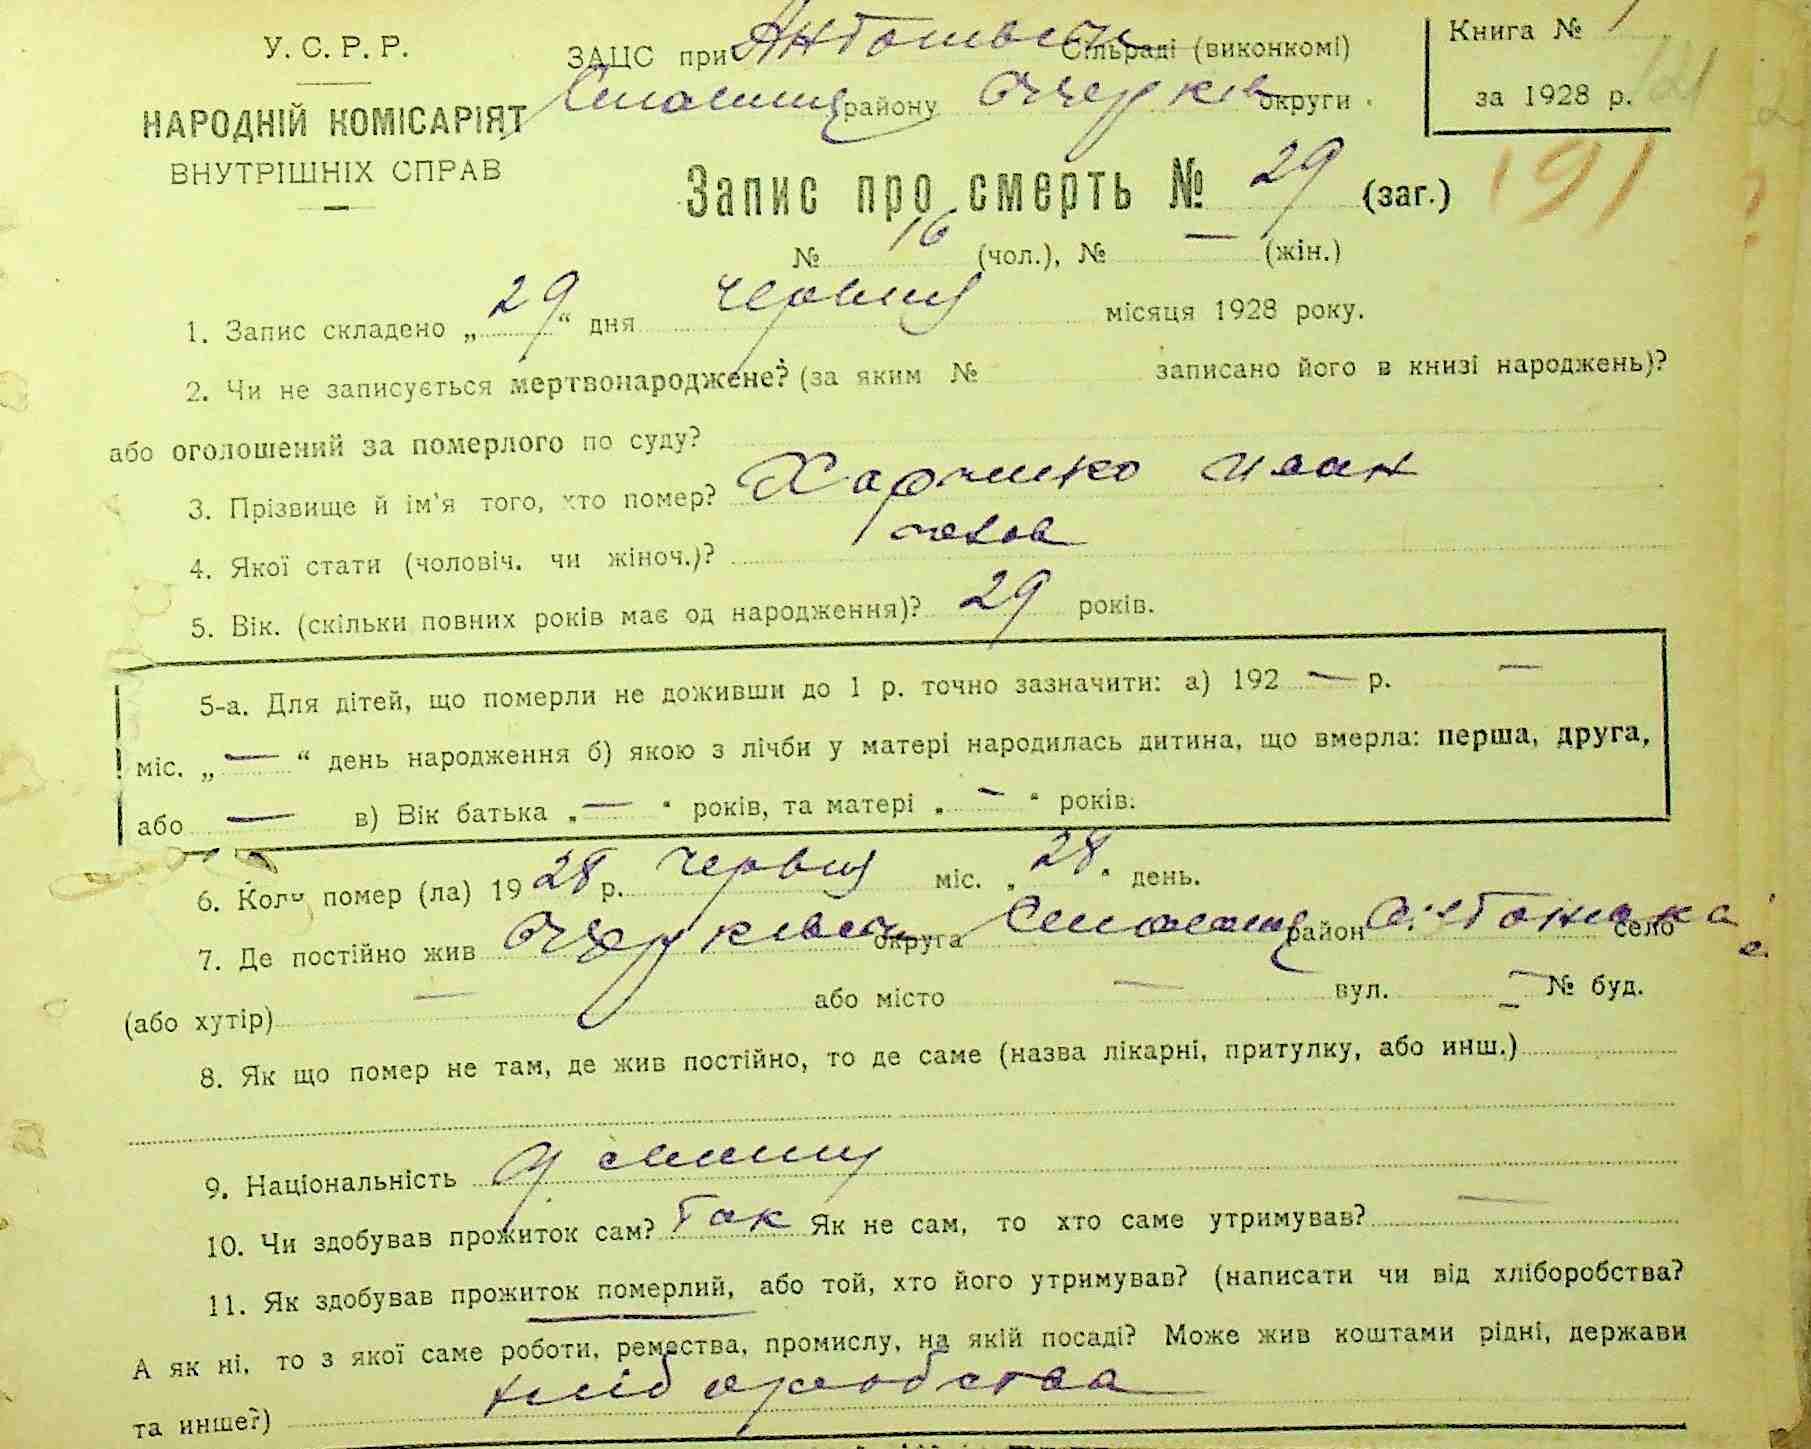 У. С. Р. Р.
НАРОДНІЙ КОМІСАРІЯТ
ВНУТРІШНІХ СПРАВ
ЗАЦС при Сільраді (виконкомі)
району округи
Книга № 1
за 1928 р.
Запис про смерть № 29 (заг.)
191
№ 16 (чол.), № — (жін.)
1. Запис складено „29“ дня червня місяця 1928 року.
2. Чи не записується мертвонароджене? (за яким № записано його в книзі народжень)?
або оголошений за померлого по суду?
3. Прізвище й ім'я того, хто помер? Харченко Иван
4. Якої стати (чоловіч. чи жіноч.)? чолов
5. Вік. (скільки повних років має од народження)? 29 років.
5-а. Для дітей, що померли не доживши до 1 р. точно зазначити: а) 192 — р. —
міс. „ — “ день народження б) якою з лічби у матері народилась дитина, що вмерла: перша, друга,
або — в) Вік батька „ — “ років, та матері „ — “ років.
6. Коли помер (ла) 19 28 р. червня міс. „28“ день.
7. Де постійно жив округа район село
(або хутір) — або місто — вул. — № буд.
8. Як що помер не там, де жив постійно, то де саме (назва лікарні, притулку, або инш.)
9. Національність
10. Чи здобував прожиток сам? Так Як не сам, то хто саме утримував? —
11. Як здобував прожиток померлий, або той, хто його утримував? (написати чи від хліборобства?
А як ні, то з якої саме роботи, ремества, промислу, на якій посаді? Може жив коштами рідні, держави
та инше?) хліборобства